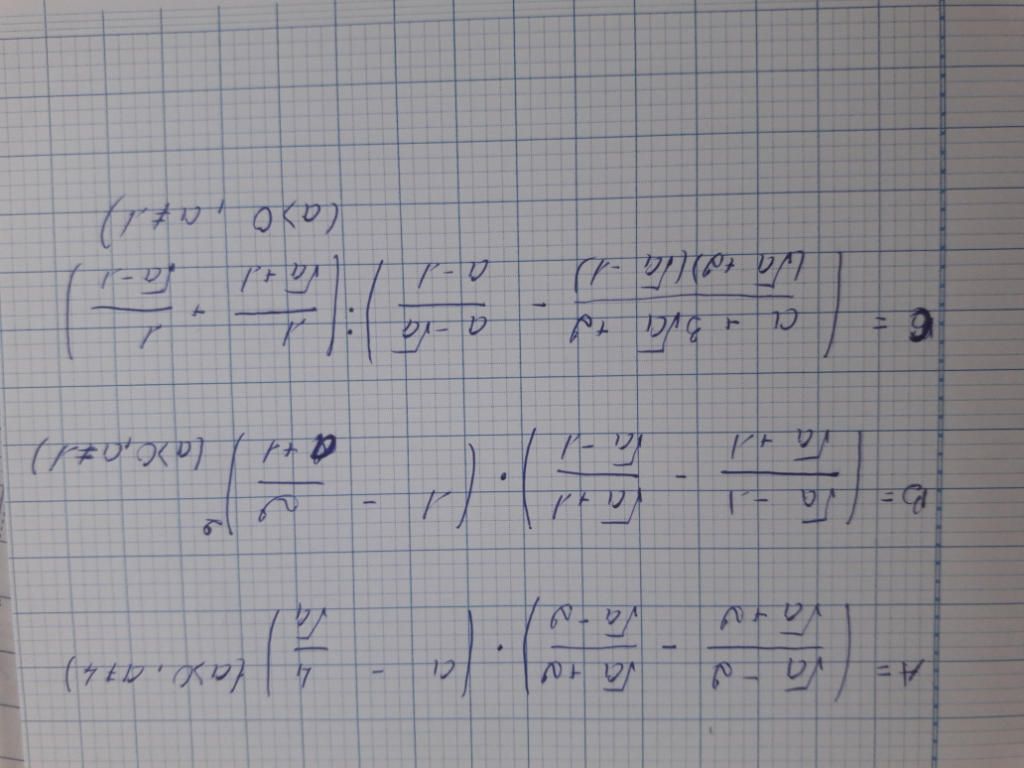 A = ( (√a - 2)/(√a + 2) - (√a + 2)/(√a - 2) ) . ( a - 4/√a ) (a>0, a≠4)
B = ( (√a - 1)/(√a + 1) - (√a + 1)/(√a - 1) ) . ( 1 - 2/(a + 1) )² (a>0, a≠1)
C = ( (a + 3√a + 2)/((√a + 2)(√a - 1)) - (a - √a)/(a - 1) ) : ( 1/(√a + 1) + 1/(√a - 1) )
(a>0, a≠1)